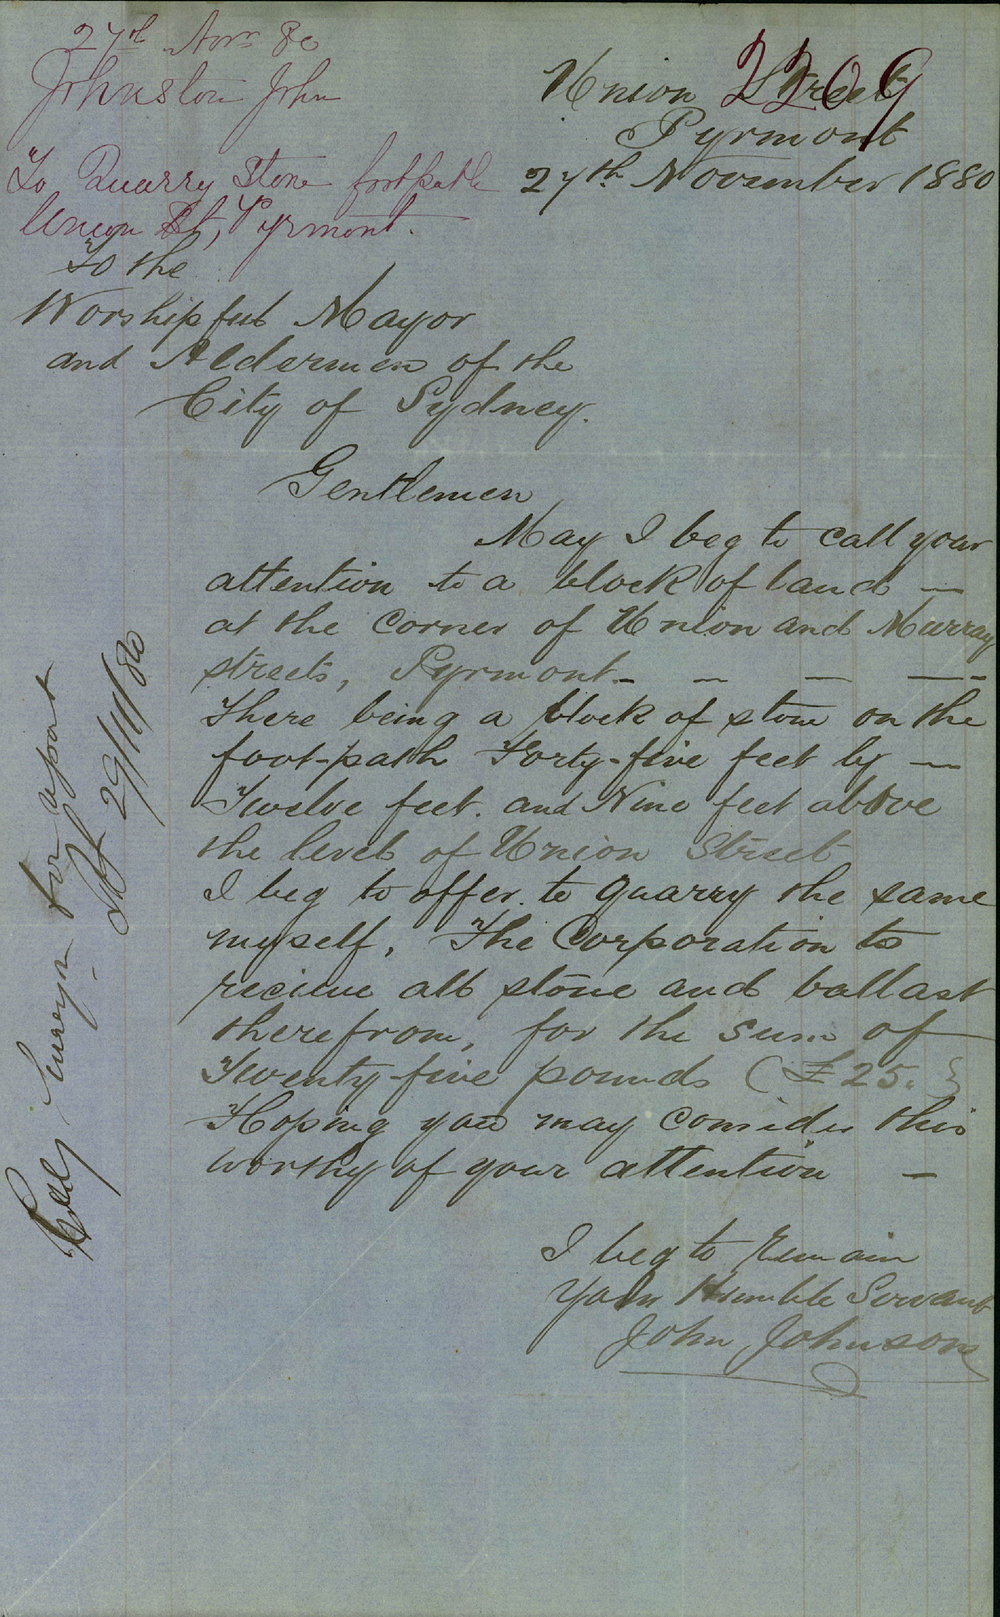 27th Novr 80
Johnston John
To Quarry Stone footpath
Union St, Pyrmont.
2209
Union Street
Pyrmont
27th November 1880
To the
Worshipful Mayor
and Aldermen of the
City of Sydney.
Gentlemen
May I beg to call your
attention to a block of land —
at the Corner of Union and Murray
streets, Pyrmont - — — — -
There being a block of stone on the
foot-path Forty-five feet by —
Twelve feet. and Nine feet above
the level of Union Street
I beg to offer. to quarry the same
myself, The Corporation to
recieve all stone and ballast
therefrom, for the sum of
Twenty-five pounds (£25.}
Hoping you may consider this
worthy of your attention —
I beg to Remain
Your Humble Servant
John Johnson
City Surveyor for report
29/11/80